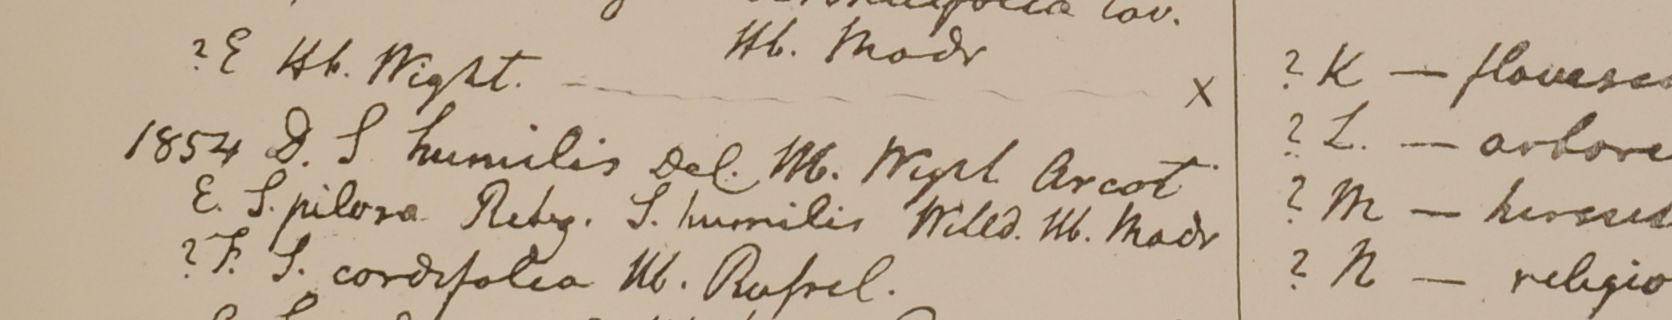 Cav.
Hb. Madr
? E Hb. Wight. — X
1854 D. S humilis Del. Hb. Wight Arcot
E. S. pilosa Retz. S. humilis Willd. Hb. Madr
? F. S. cordifolia Hb. Russel.
? K —
? L. — arbore
? M — hirsut
? N — religio